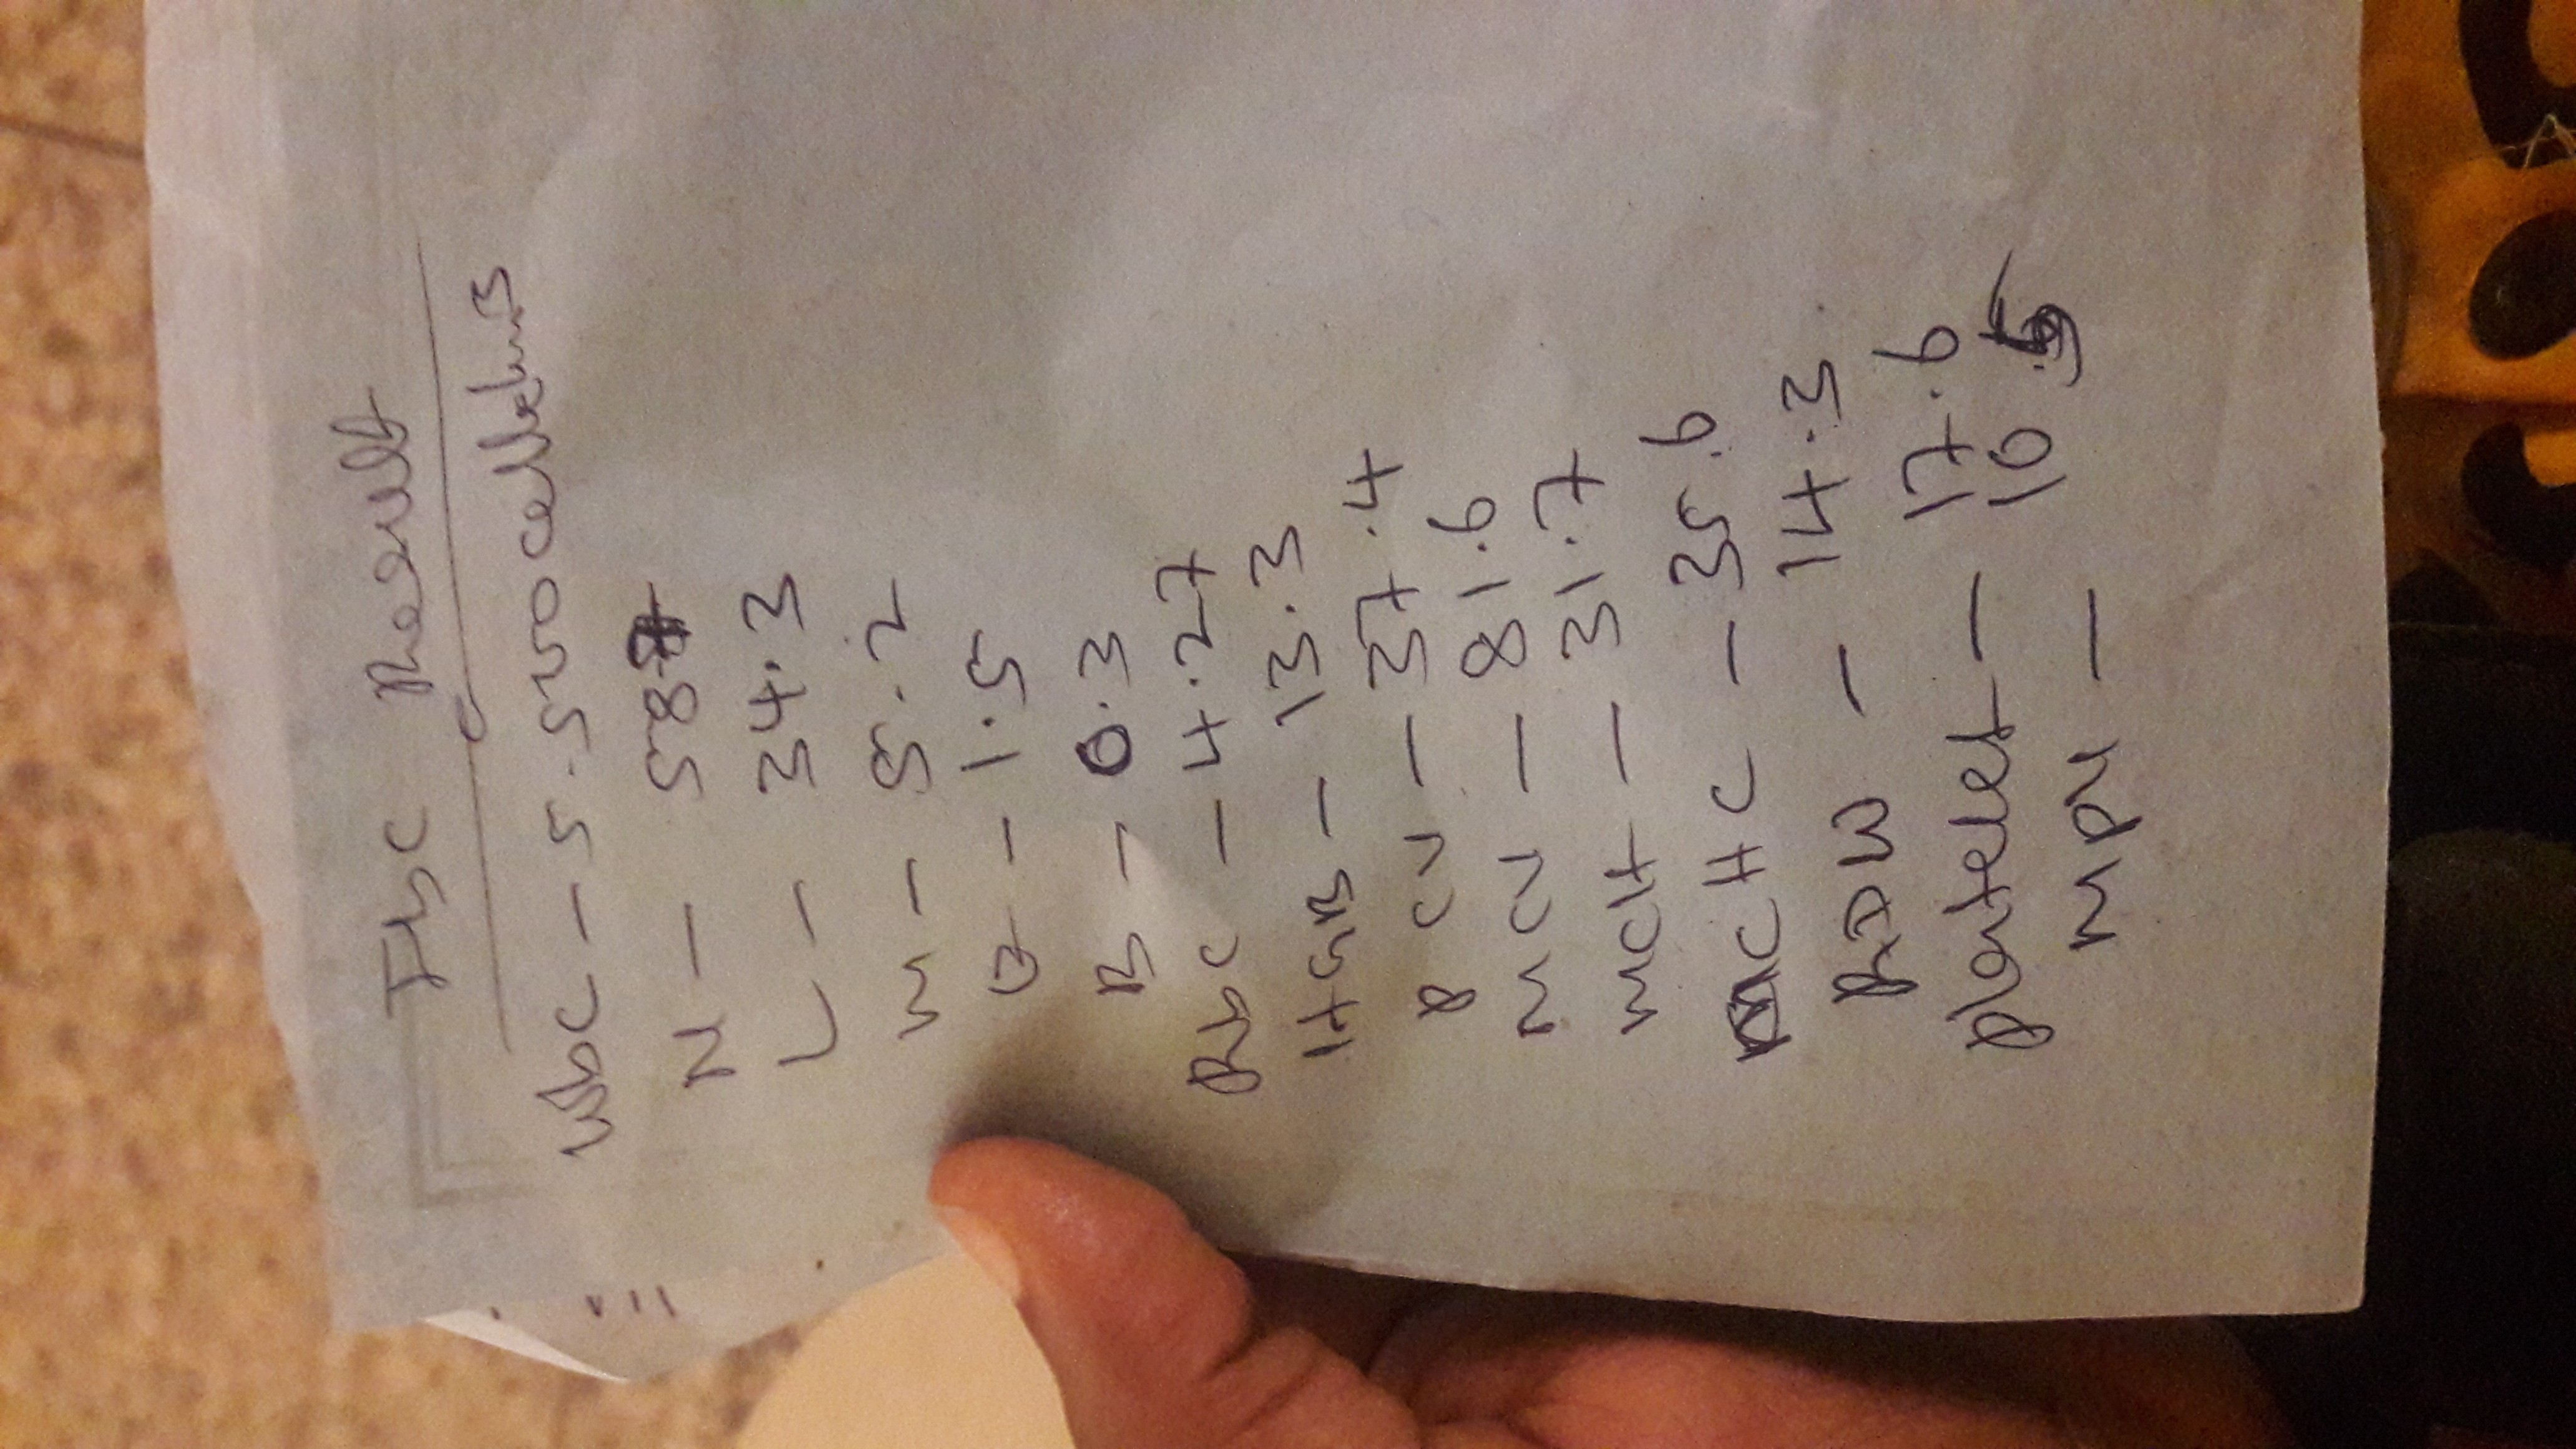 Result
Wbc - 5.5
N - 58
L - 34.3
M - 5.2
- 1.5
B - 0.3
Rbc - 4.27
HGB - 13.3
CV - 37.4
MCV - 81.6
MCH - 31.7
MCHC - 35.6
RDW - 14.3
Platelet - 17.6
MPV - 10.